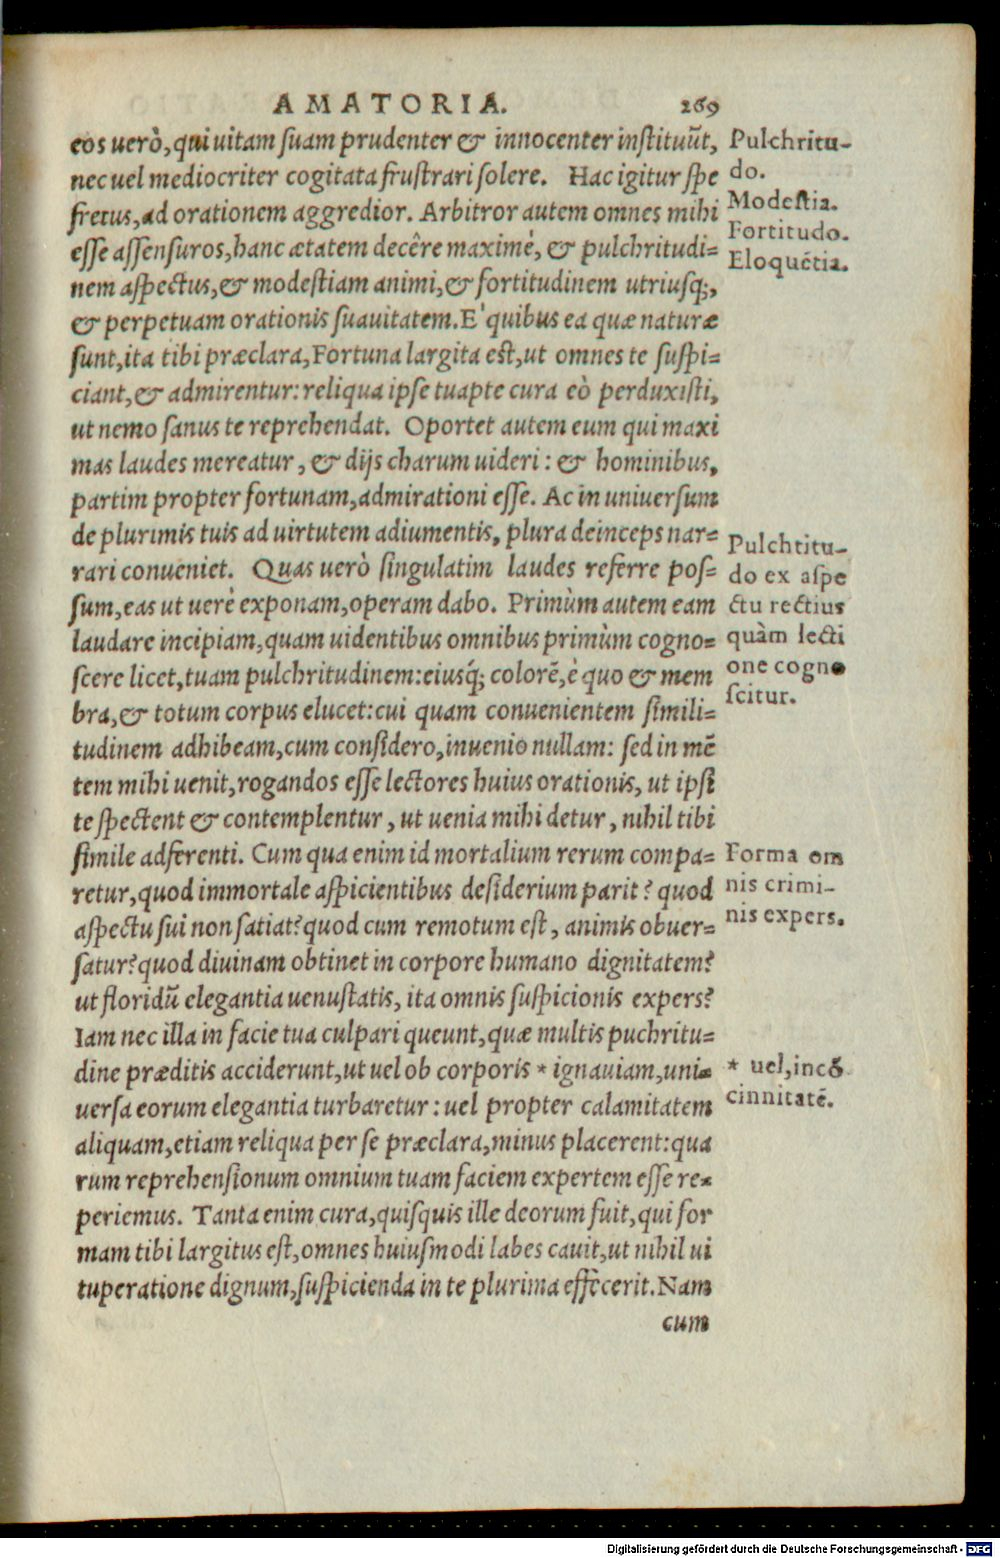 AMATORIA. 269
eos uerò, qui uitam suam prudenter & innocenter instituūt,
nec uel mediocriter cogitata frustrari solere. Hac igitur spe
fretus, ad orationem aggredior. Arbitror autem omnes mihi
esse assensuros, hanc ætatem decêre maximè, & pulchritudi=
nem aspectus, & modestiam animi, & fortitudinem utriusq;,
& perpetuam orationis suauitatem. E' quibus ea quæ naturæ
sunt, ita tibi præclara, Fortuna largita est, ut omnes te suspi=
ciant, & admirentur: reliqua ipse tuapte cura eò perduxisti,
ut nemo sanus te reprehendat. Oportet autem eum qui maxi
mas laudes mereatur, & dijs charum uideri: & hominibus,
partim propter fortunam, admirationi esse. Ac in uniuersum
de plurimis tuis ad uirtutem adiumentis, plura deinceps nar=
rari conueniet. Quas uerò singulatim laudes referre pos=
sum, eas ut uerè exponam, operam dabo. Primùm autem eam
laudare incipiam, quam uidentibus omnibus primùm cogno=
scere licet, tuam pulchritudinem: eiusq́; colorē, è quo & mem
bra, & totum corpus elucet: cui quam conuenientem simili=
tudinem adhibeam, cum considero, inuenio nullam: sed in mē
tem mihi uenit, rogandos esse lectores huius orationis, ut ipsi
te spectent & contemplentur, ut uenia mihi detur, nihil tibi
simile adferenti. Cum qua enim id mortalium rerum compa=
retur, quod immortale aspicientibus desiderium parit? quod
aspectu sui non satiat? quod cum remotum est, animis obuer=
satur? quod diuinam obtinet in corpore humano dignitatem?
ut floridū elegantia uenustatis, ita omnis suspicionis expers?
Iam nec illa in facie tua culpari queunt, quæ multis puchritu=
dine præditis acciderunt, ut uel ob corporis * ignauiam, uni=
uersa eorum elegantia turbaretur: uel propter calamitatem
aliquam, etiam reliqua per se præclara, minus placerent: qua
rum reprehensionum omnium tuam faciem expertem esse re=
periemus. Tanta enim cura, quisquis ille deorum fuit, qui for
mam tibi largitus est, omnes huiusmodi labes cauit, ut nihil ui
tuperatione dignum, suspicienda in te plurima effecerit. Nam
cum
Pulchritu-
do.
Modestia.
Fortitudo.
Eloquētia.
Pulchtitu-
do ex aspe
ctu rectius
quàm lecti
one cogno
scitur.
Forma om
nis crimi-
nis expers.
* uel, incō
cinnitatē.
Digitalisierung gefördert durch die Deutsche Forschungsgemeinschaft - DFG